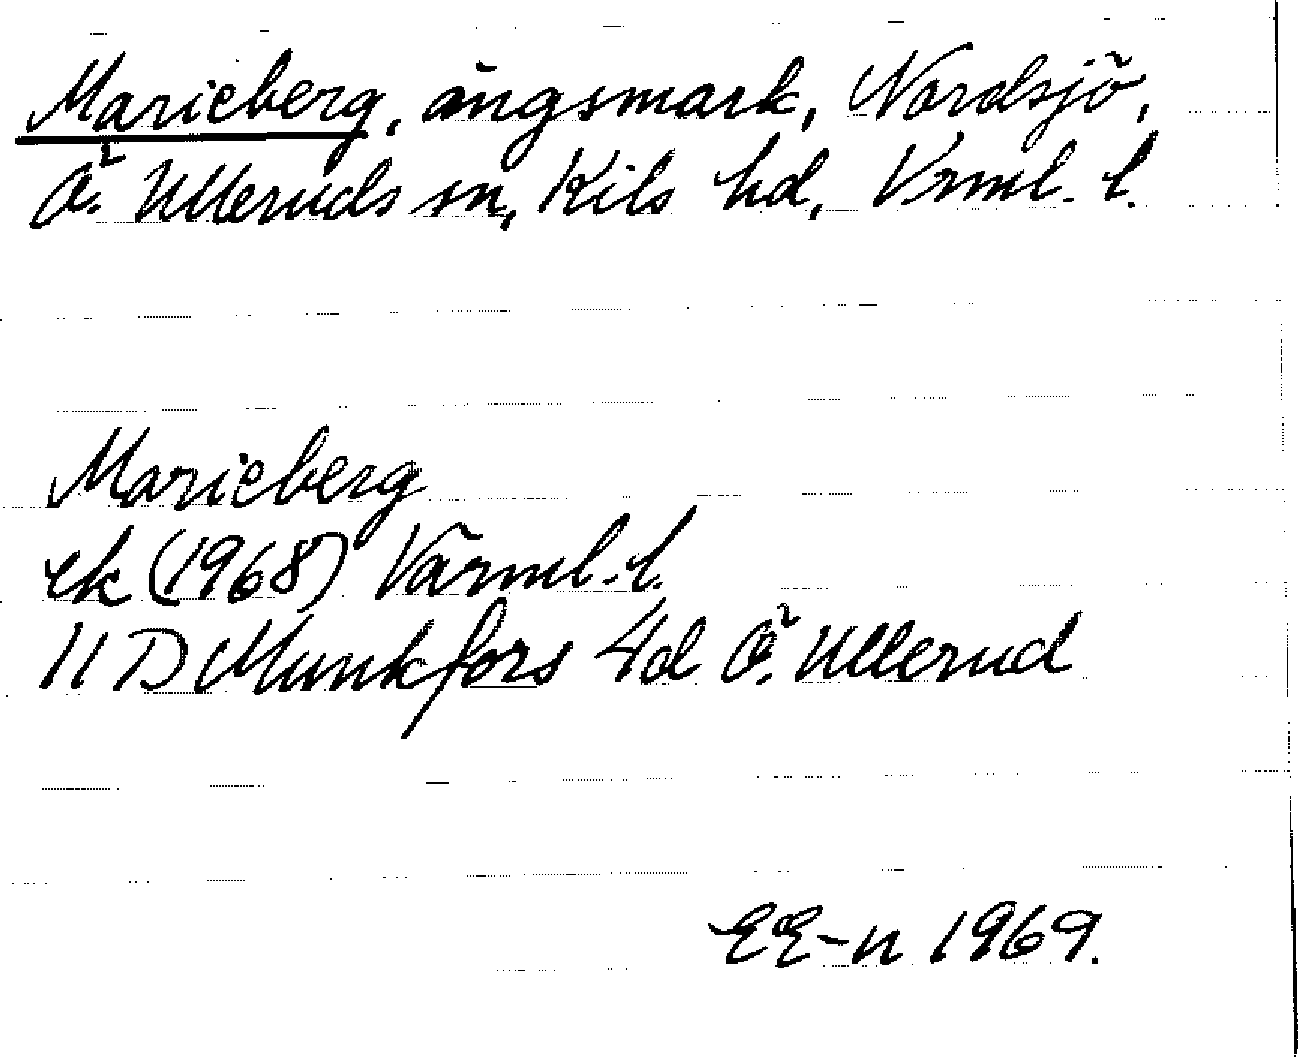 Marieberg, ängsmark, Nordsjö,
Ö. Ulleruds sn, Kils hd, Vrml. l.
Marieberg
ek (1968) Värml. l.
11 D Munkfors 4d Ö. Ullerud
EE-n 1969.